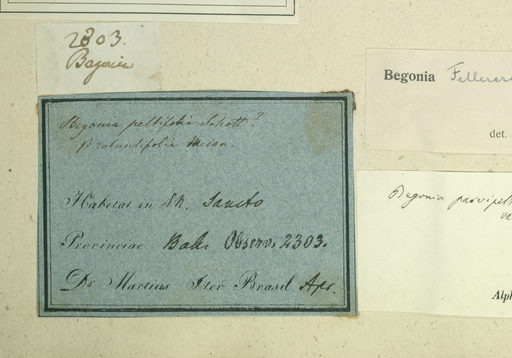 2303.
Begonia
Begonia peltifolia Schott?
β rotundifolia Meisn.
Habitat in Sancto
Provinciae Bah. Observ. 2303.
Dr Martius Iter Brasil Apr.
Begonia
det.
Begonia parvipelt
Alph